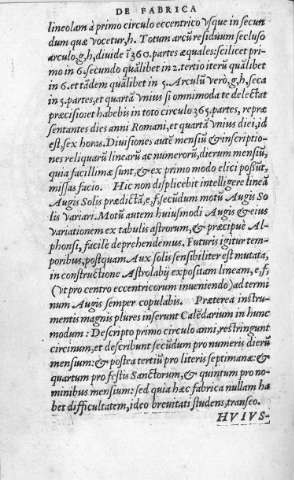 DE FABRICA
lineolam à primo circulo eccentrico vsque in secun
dum quæ vocetur, h. Totum arcũ residuum secluso
arculo, g, h, diuide ĩ 360. partes æquales: scilicet pri
mo in 6. secundo quãlibet in 2. tertio iterũ quãlibet
in 6. et tãdem quãlibet in 5. Arculũ verò, g, h, seca
in 5. partes, et quartã vnius si omnimoda te delectat
præcisio: et habebis in toto circulo 365. partes, repræ
sentantes dies anni Romani, et quartã vnius diei, id
est, sex horas. Diuisiones autē mensiũ & inscriptio-
nes reliquarũ linearũ ac numerorũ, dierum mensiũ,
quia facillimæ sunt, & ex primo modo elici possũt,
missas facio. Hic non displicebit intelligere lineã
Augis Solis prædictã, e, f, secũdum motũ Augis So
lis variari. Motũ autem huiusmodi Augis & eius
variationem ex tabulis astrorum, & præcipuè Al-
phonsi, facilè deprehendemus. Futuris igitur tem-
poribus, postquam Aux solis sensibiliter est mutata,
in constructione Astrolabij expositam lineam, e, f,
(vt pro centro eccentricorum inueniendo) ad termi
num Augis semper copulabis. Præterea instru-
mentis magnis plures inserunt Calēdarium in hunc
modum: Descripto primo circulo anni, restringunt
circinum, et describunt secũdum pro numeris dierũ
mensium: & postea tertiũ pro literis septimanæ: &
quartum pro festis Sanctorum, & quintum pro no-
minibus mensium: sed quia hæc fabrica nullam ha
bet difficultatem, ideo breuitati studens, transeo.
HVIVS-